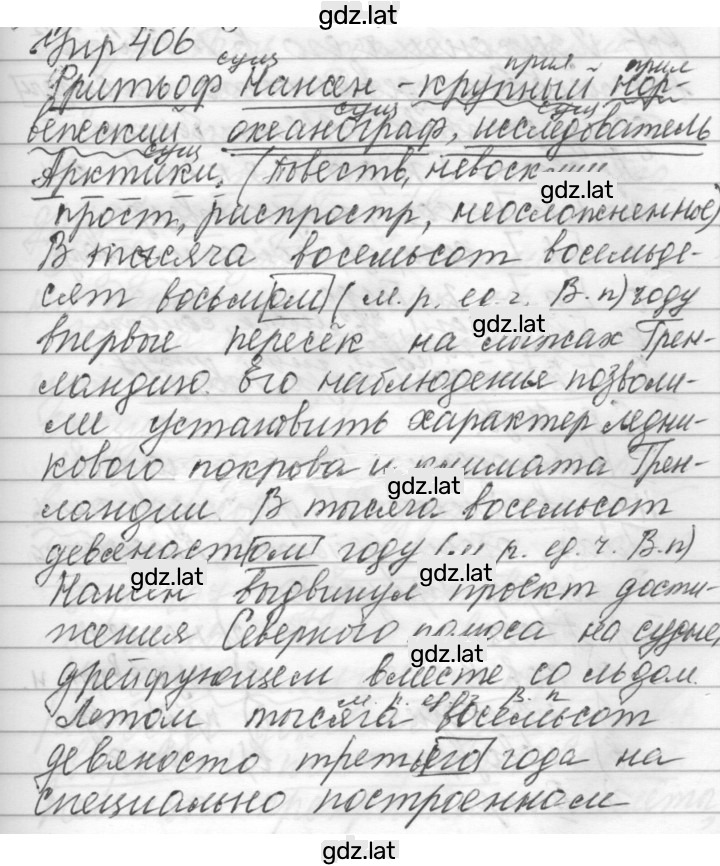 gdz.lat
Упр 406
сущ прил прил
Фритьоф Нансен - крупный нор-
сущ сущ
вежский океанограф, исследователь
сущ
Арктики. (Повеств, невоскл
gdz.lat
прост, распростр, неосложненное)
В тысяча восемьсот восемьде-
сят восьмом (м.р. ед.ч. В.п) году
gdz.lat
впервые пересёк на лыжах Грен-
ландию. Его наблюденья позволи-
ли установить характер ледни-
кового покрова и климата Грен-
gdz.lat
ландии. В тысяча восемьсот
девяностом году (м. р. ед. ч. В.п)
gdz.lat gdz.lat
Нансен выдвинул проект дости-
жения Северного полюса на судне,
gdz.lat
дрейфующем вместе со льдом.
м. р. ед ч. В. п
Летом тысяча восемьсот
девяносто третьего года на
специально построенном
gdz.lat